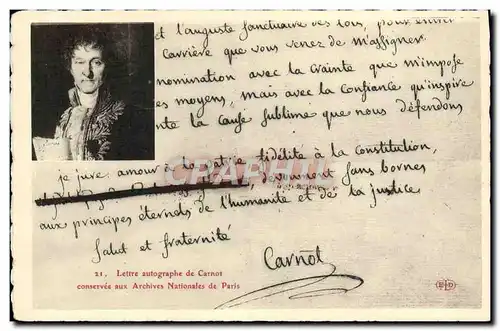 et l'auguste sanctuaire des lois, pour entrer
carrière que vous venez de m'assigner
nomination avec la crainte que m'impose
es moyens, mais avec la confiance qu'inspire
nte la cause sublime que nous défendons
je jure amour à la patrie fidélité à la constitution,
dévouement sans bornes
aux principes éternels de l'humanité et de la justice
Salut et fraternité
Carnot
21. Lettre autographe de Carnot
conservée aux Archives Nationales de Paris
CPRAPHIL